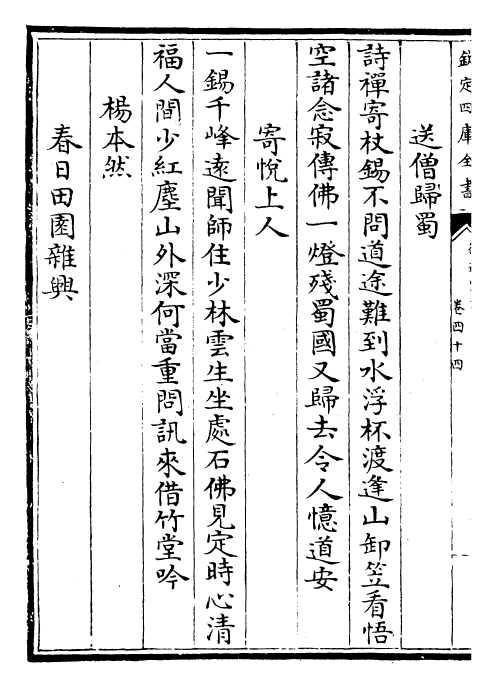 欽定四庫全書
卷四十四
送僧歸蜀
詩禪寄杖錫不問道途難到水浮杯渡逢山卸笠看悟
空諸念寂傳佛一燈殘蜀國又歸去令人憶道安
寄悅上人
一錫千峰遠聞師住少林雲生坐處石佛見定時心清
福人間少紅塵山外深何當重問訊來借竹堂吟
楊本然
春日田園雜興